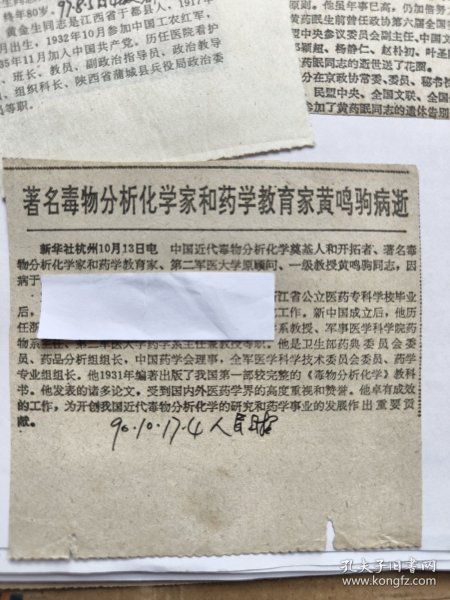 终年80岁。
97.8.5
黄金生同志是江西省于都县人，1917年
月出生，1932年10月参加中国工农红军，
35年11月加入中国共产党。历任医院看护
班长、教员、副政治指导员、政治教导
组织科长、陕西省蒲城县兵役局政治委
等职。
原则。他虽年事已高，仍加倍努力
黄药眠生前曾任政协第六届全国
中央参议委员会副主任、中国文
邓颖超、杨静仁、赵朴初、叶圣
药眠同志的逝世送了花圈。
分在京政协常委、委员、秘书长
民盟中央、全国文联、全国
参加了黄药眠同志的遗体告别
著名毒物分析化学家和药学教育家黄鸣驹病逝
新华社杭州10月13日电 中国近代毒物分析化学奠基人和开拓者、著名毒
物分析化学家和药学教育家、第二军医大学原顾问、一级教授黄鸣驹同志，因
病于
浙江省公立医药专科学校毕业
后，
工作。新中国成立后，他历
任浙
系教授、军事医学科学院药
物系主任、第二军医大学药学系主任兼教授等职。他是卫生部药典委员会委
员、药品分析组组长，中国药学会理事，全军医学科学技术委员会委员、药学
专业组组长。他1931年编著出版了我国第一部较完整的《毒物分析化学》教科
书。他发表的诸多论文，受到国内外医药学界的高度重视和赞誉。他卓有成效
的工作，为开创我国近代毒物分析化学的研究和药学事业的发展作出重要贡
献。
90.10.17.4 人民日报
孔夫子旧书网
www.kongfz.com